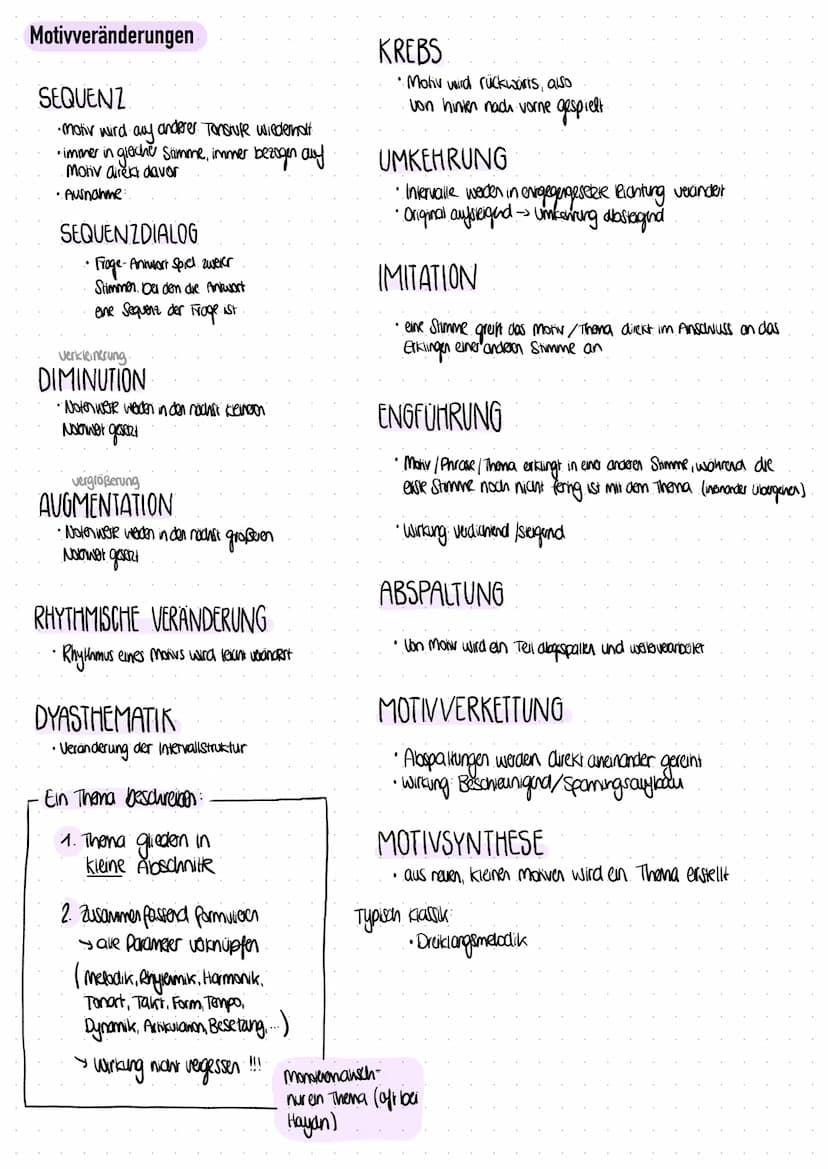 Motivveränderungen
SEQUENZ
· Motiv wird auf anderer Tonstufe wiederholt
· immer in gleicher Stimme, immer bezogen auf
Motiv direkt davor
· Ausnahme:
SEQUENZDIALOG
· Frage-Antwort Spiel zweier
Stimmen, bei den die Antwort
eine Sequenz der Frage ist
verkleinerung
DIMINUTION
· Notenwerte werden in den nächst kleineren
Notenwert gesetzt
vergrößerung
AUGMENTATION
· Notenwerte werden in den nächst größeren
Notenwert gesetzt
RHYTHMISCHE VERÄNDERUNG
· Rhythmus eines Motivs wird leicht verändert
DYASTHEMATIK
· Veränderung der Intervallstruktur
Ein Thema beschreiben:
1. Thema gliedern in
kleine Abschnitte
2. Zusammenfassend formulieren
→ alle Parameter verknüpfen
(Melodik, Rhythmik, Harmonik,
Tonart, Takt, Form, Tempo,
Dynamik, Artikulation, Besetzung, ...)
→ Wirkung nicht vergessen !!!
monothematisch-
nur ein Thema (oft bei
Haydn)
KREBS
· Motiv wird rückwärts, also
von hinten nach vorne gespielt
UMKEHRUNG
· Intervalle werden in entgegengesetzte Richtung verändert
· Original aufsteigend → Umkehrung absteigend
IMITATION
· eine Stimme greift das Motiv/Thema direkt im Anschluss an das
Erklingen einer anderen Stimme an
ENGFÜHRUNG
· Motiv/Phrase/Thema erklingt in einer anderen Stimme, während die
erste Stimme noch nicht fertig ist mit dem Thema (ineinander übergehen)
· Wirkung: verdichtend/steigernd
ABSPALTUNG
· Von Motiv wird ein Teil abgespalten und weiterverarbeitet
MOTIVVERKETTUNG
· Abspaltungen werden direkt aneinander gereiht
· Wirkung: Beschleunigend/Spannungsaufbau
MOTIVSYNTHESE
· aus neuen, kleinen Motiven wird ein Thema erstellt
Typisch Klassik:
· Dreiklangsmelodik